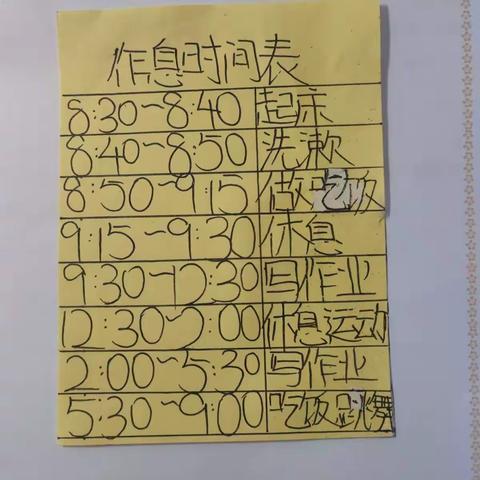 作息时间表
8:30~8:40 起床
8:40~8:50 洗漱
8:50~9:15 做吃饭
9:15~9:30 休息
9:30~12:30 写作业
12:30~2:00 休息运动
2:00~5:30 写作业
5:30~9:00 吃饭跳舞